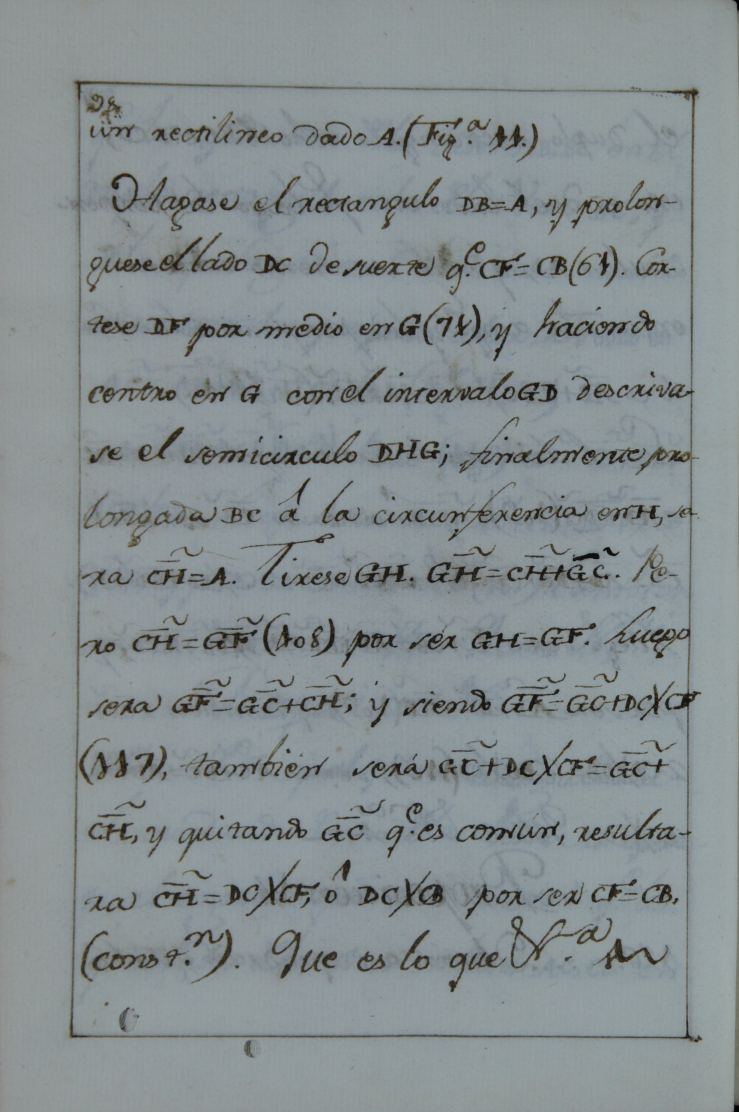 un rectilineo dado A. (Fig.ª 11.)
Hagase el rectangulo DB=A, y prolon-
guese el lado DC de suerte q.e CF=CB (61). Cor-
tese DF por medio en G (71), y haciendo
centro en G con el intervalo GD descriva-
se el semicirculo DHG; finalmente pro-
longada BC á la circunferencia en H, se
ra C̅H̅²=A. Tirese GH. G̅H̅²=C̅H̅²+G̅C̅². Pe-
ro C̅H̅²=G̅F̅² (108) por sér GH=GF. Luego
sera G̅F̅²=G̅C̅²+C̅H̅²; y siendo G̅F̅²=G̅C̅²+DC×CF
(117), tambien será G̅C̅²+DC×CF=G̅C̅²+
C̅H̅², y quitando G̅C̅² q.e es comun, resulta-
ra C̅H̅²=DC×CF, ó DC×CB por ser CF=CB.
(const.n). Que es lo que &.ª